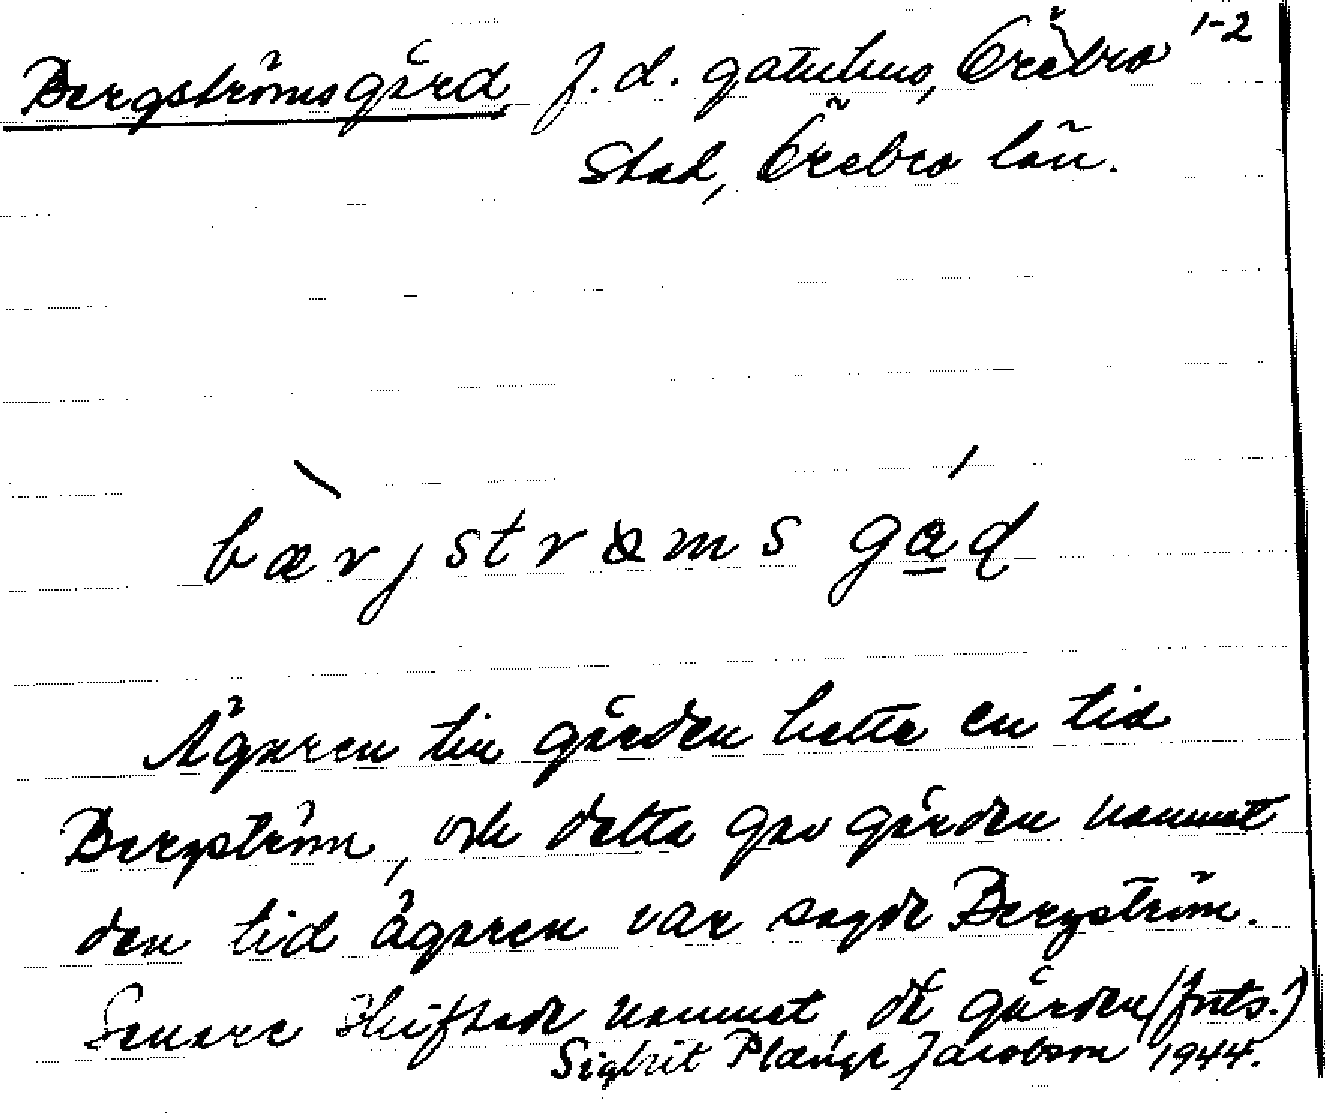 Bergströmsgård f.d. gatuhus, Örebro 1-2
Stad, Örebro län.
bærjstrøms gɑ̲ɖ
Ägaren till gården hette en tid
Bergström, och detta gav gården namnet
den tid ägaren var sagde Bergström.
Senare skiftade namnet, då gården (forts.)
Sigbrit Plænge Jacobson 1944.